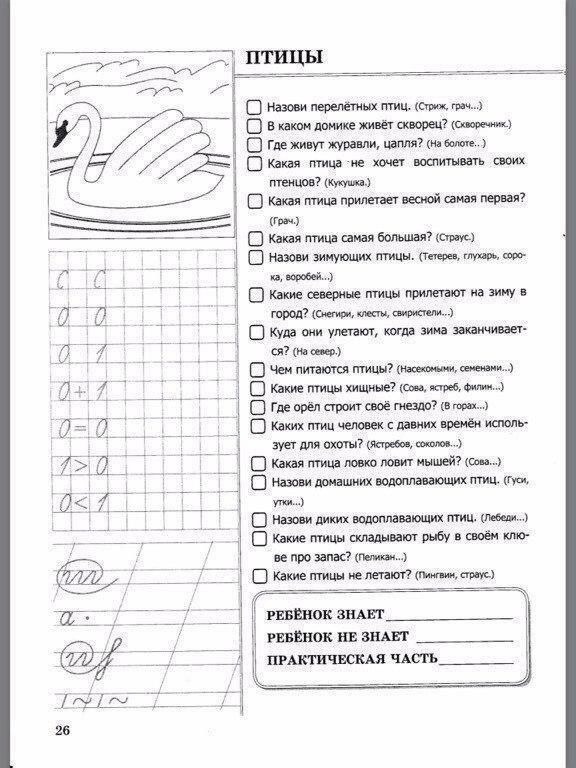 ПТИЦЫ
Назови перелётных птиц. (Стриж, грач...)
В каком домике живёт скворец? (Скворечник.)
Где живут журавли, цапля? (На болоте...)
Какая птица не хочет воспитывать своих
птенцов? (Кукушка.)
Какая птица прилетает весной самая первая?
(Грач.)
Какая птица самая большая? (Страус.)
Назови зимующих птицы. (Тетерев, глухарь, соро-
ка, воробей...)
Какие северные птицы прилетают на зиму в
город? (Снегири, клесты, свиристели...)
Куда они улетают, когда зима заканчивает-
ся? (На север.)
Чем питаются птицы? (Насекомыми, семенами...)
Какие птицы хищные? (Сова, ястреб, филин...)
Где орёл строит своё гнездо? (В горах...)
Каких птиц человек с давних времён исполь-
зует для охоты? (Ястребов, соколов...)
Какая птица ловко ловит мышей? (Сова...)
Назови домашних водоплавающих птиц. (Гуси,
утки...)
Назови диких водоплавающих птиц. (Лебеди...)
Какие птицы складывают рыбу в своём клю-
ве про запас? (Пеликан...)
Какие птицы не летают? (Пингвин, страус.)
РЕБЁНОК ЗНАЕТ
РЕБЁНОК НЕ ЗНАЕТ
ПРАКТИЧЕСКАЯ ЧАСТЬ
С С
0 0
0 1
0 + 1
0 = 0
1 > 0
0 < 1
а .
26